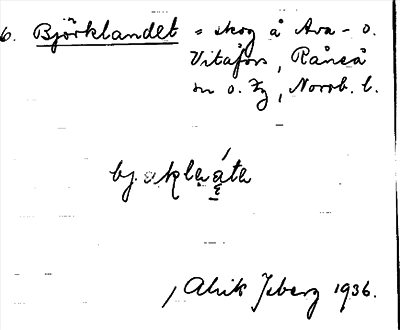 6. Björklandet = skog å Ava- o.
Vitåfors, Råneå
sn o. Lg, Norrb. l.
bj.
Alrik Isberg 1936.